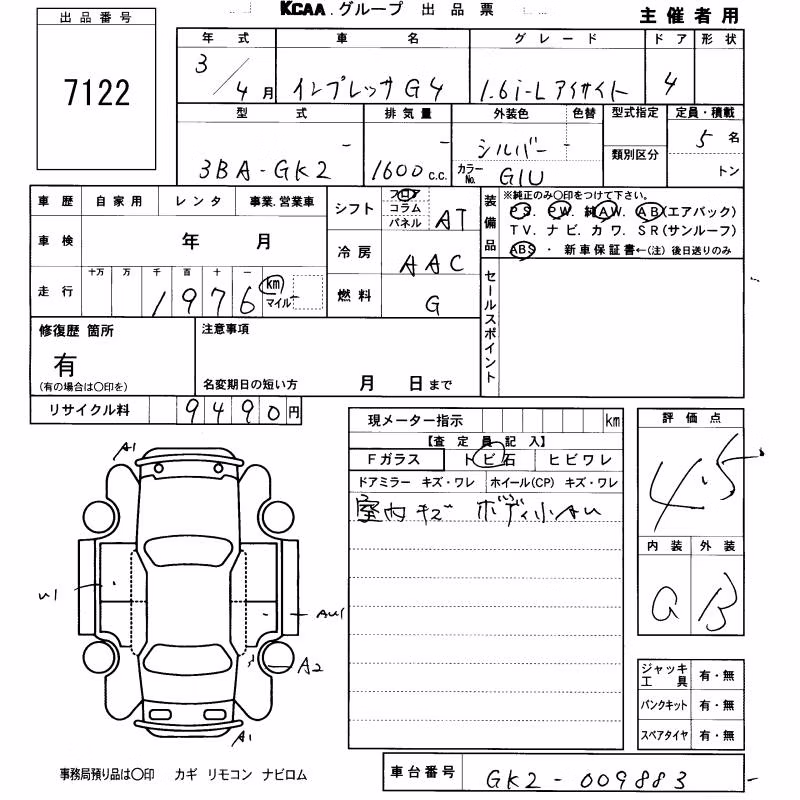 KCAA.グループ 出品票
主催者用
出品番号
7122
年式 車名 グレード ドア 形状
3/4月 インプレッサG4 1.6i-Lアイサイト 4
型式 排気量 外装色 色替 型式指定 定員・積載
3BA-GK2 - 1600c.c. - シルバー - 5名
カラーNo. G1U 類別区分 トン
車歴 自家用 レンタ 事業.営業車
シフト フロア コラム パネル AT
装備品 ※純正のみ○印をつけて下さい。
PS. PW. 純AW. AB(エアバック)
TV. ナビ. カワ. SR(サンルーフ)
ABS ・ 新車保証書←(注) 後日送りのみ
車検 年 月
冷房 AAC
走行 十万 万 千 百 十 一
1976 km マイル
燃料 G
セールスポイント
修復歴 箇所
有
(有の場合は○印を)
注意事項
名変期日の短い方 月 日まで
リサイクル料 9490円
現メーター指示 km
【査定員記入】
Fガラス トビ石 ヒビワレ
ドアミラー キズ・ワレ ホイール(CP) キズ・ワレ
室内キズ ボディ小AU
評価点
4.5
内装 外装
a B
A1
U1
AU1
A2
A1
ジャッキ工具 有・無
パンクキット 有・無
スペアタイヤ 有・無
事務局預り品は○印 カギ リモコン ナビロム
車台番号 GK2-009883